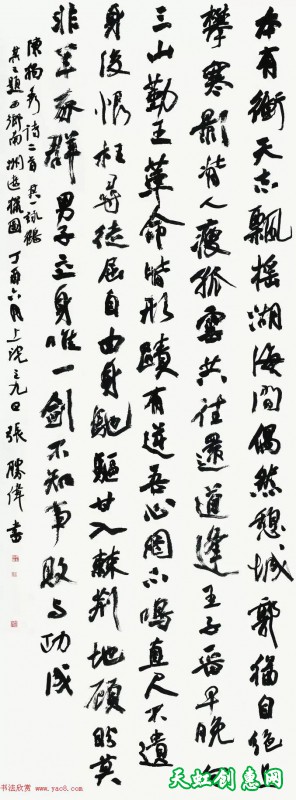 本有衝天志飄摇湖海間偶然憩城郭猶自絶追
攀寒影背人瘦孤雲共往還道逢王子晉早晚向
三山勤王革命皆形蹟有逆吾心罔不鳴直尺不遺
身後恨枉尋徒屈自由身馳驅甘入棘荆地顧盼莫
非羊豕群男子立身唯一劍不知事敗与功成
陳獨秀詩二首其一詠鶴
其二題西鄉南洲遊獵圖丁酉六月上浣之九日張勝偉書
书法欣赏 www.yac8.com
天虹创惠网